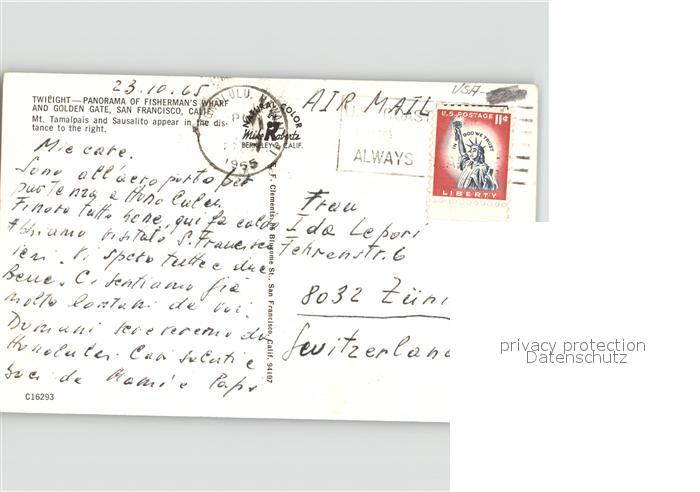 23.10.65
TWILIGHT—PANORAMA OF FISHERMAN'S WHARF
AND GOLDEN GATE, SAN FRANCISCO, CALIF.
Mt. Tamalpais and Sausalito appear in the dis-
tance to the right.
Mie care.
Sono all'aeroporto per
partenza a Honolulu.
Finora tutto bene, qui fa caldo
Abbiamo visitato S. Francisco
ieri. Vi spero tutte e due
Bene. Ci sentiamo già
molto lontani da voi.
Domani scriveremo da
Honolulu. Cari saluti e
baci da Mami e Papi
C16293
E. F. Clements, Blossome St., San Francisco, Calif. 94107
HONOLULU,
PM
1965
NATURAL COLOR
Mike Roberts
BERKELEY 2, CALIF.
AIR MAIL
USA
ALWAYS
U.S. POSTAGE 11¢
IN GOD WE TRUST
LIBERTY
Frau
Ida Lepori
Fehrenstr. 6
8032 Züri
Switzerland
privacy protection
Datenschutz